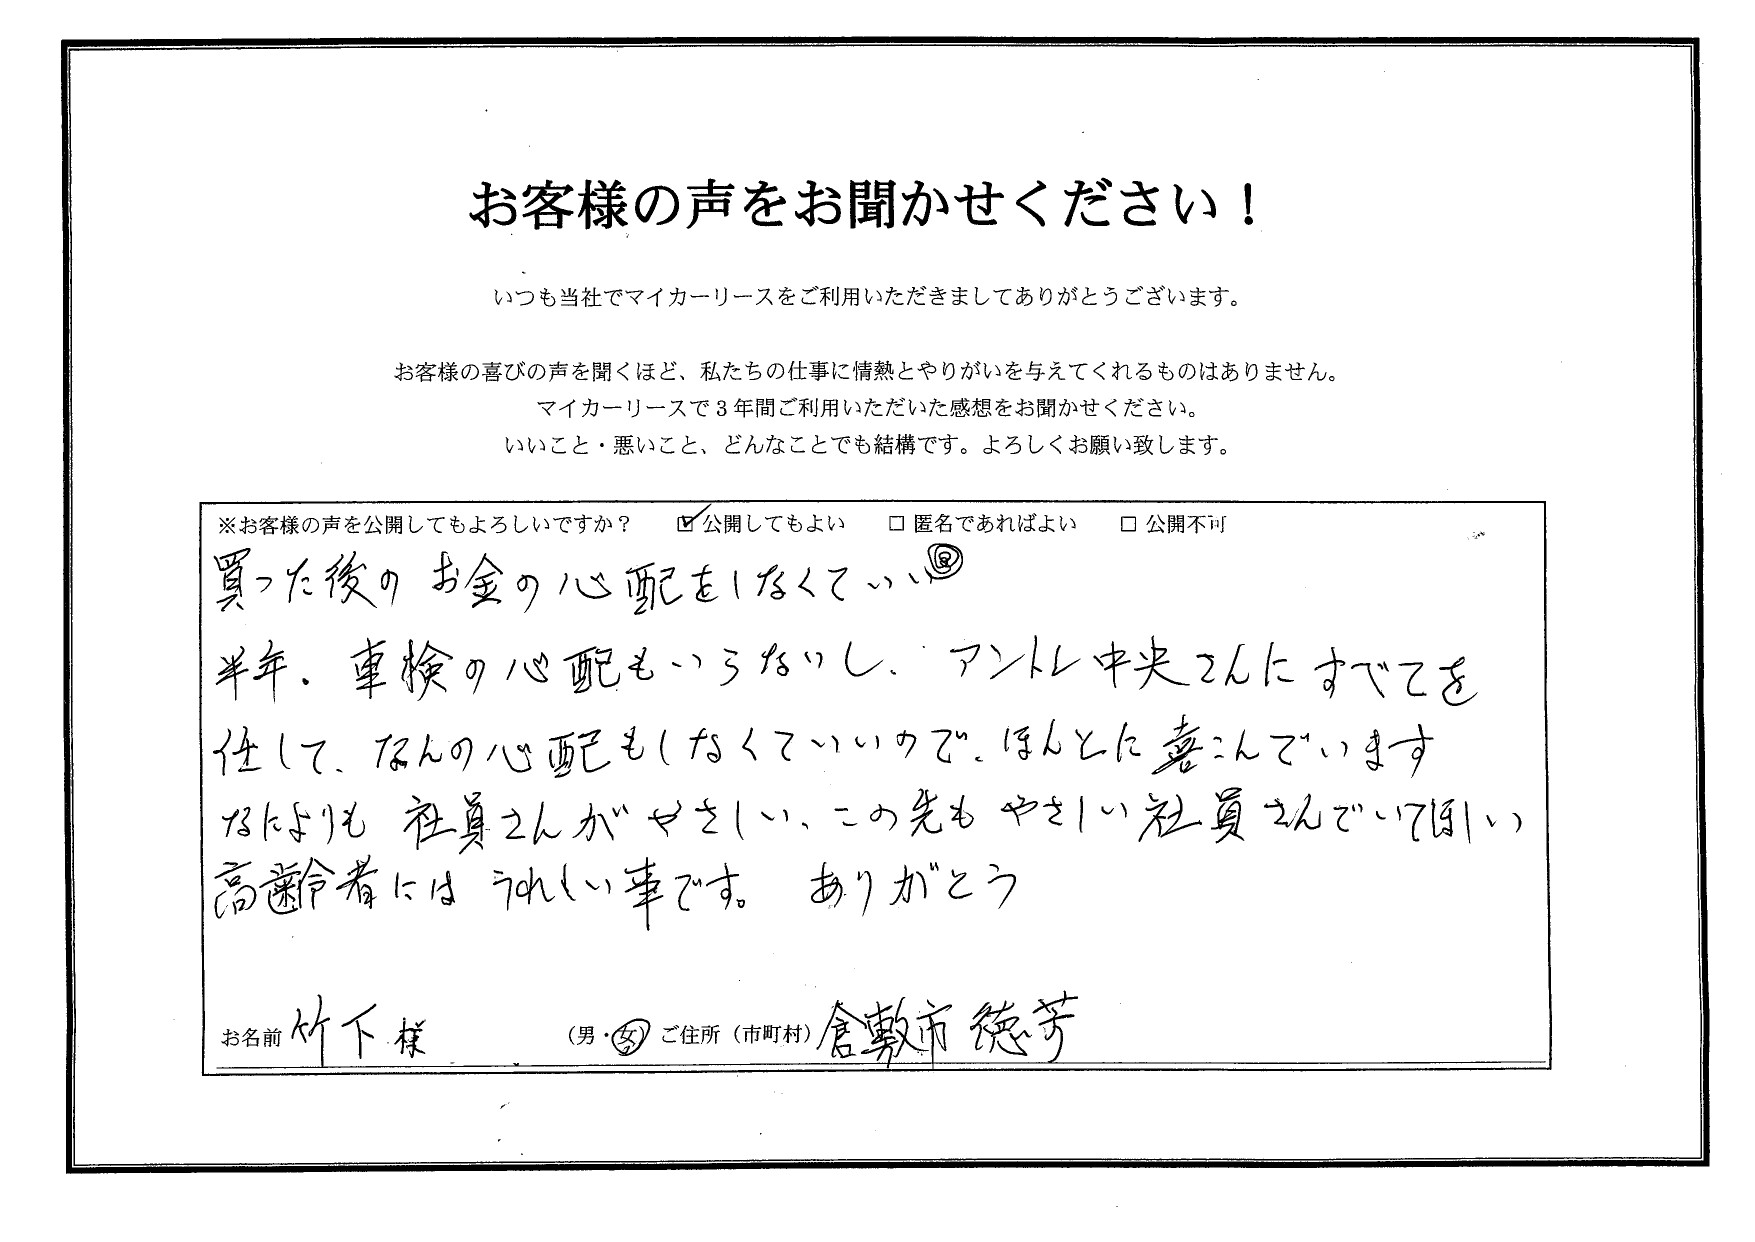 お客様の声をお聞かせください！
いつも当社でマイカーリースをご利用いただきましてありがとうございます。
お客様の喜びの声を聞くほど、私たちの仕事に情熱とやりがいを与えてくれるものはありません。
マイカーリースで３年間ご利用いただいた感想をお聞かせください。
いいこと・悪いこと、どんなことでも結構です。よろしくお願い致します。
※お客様の声を公開してもよろしいですか？ ☑公開してもよい □匿名であればよい □公開不可
買った後の お金の心配をしなくていい
半年、車検の心配もいらないし、アントレ中央さんに すべてを
任して、なんの心配もしなくていいので、ほんとに喜こんでいます
なによりも 社員さんが やさしい、この先も やさしい社員さんでいてほしい
高齢者には うれしい事です。 ありがとう
お名前 竹下 様 （男・女） ご住所（市町村） 倉敷市 徳芳